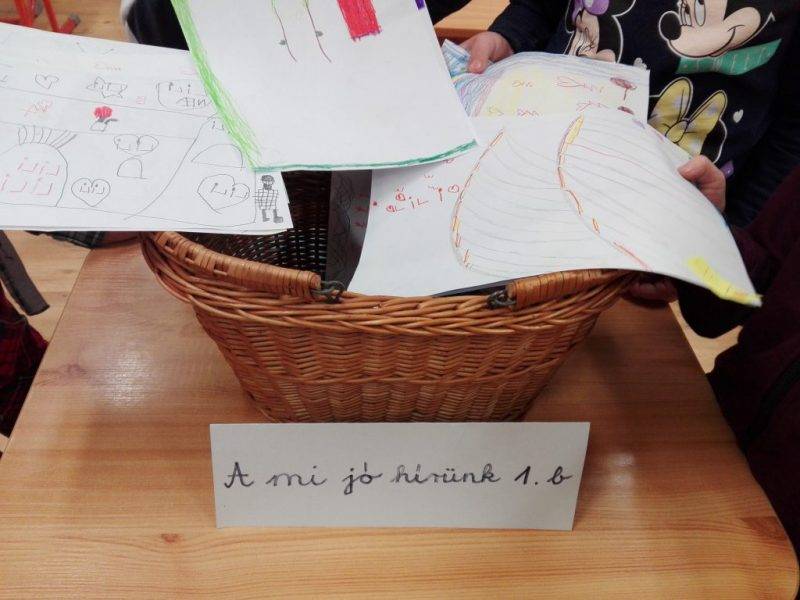 A mi jó hírünk 1. b